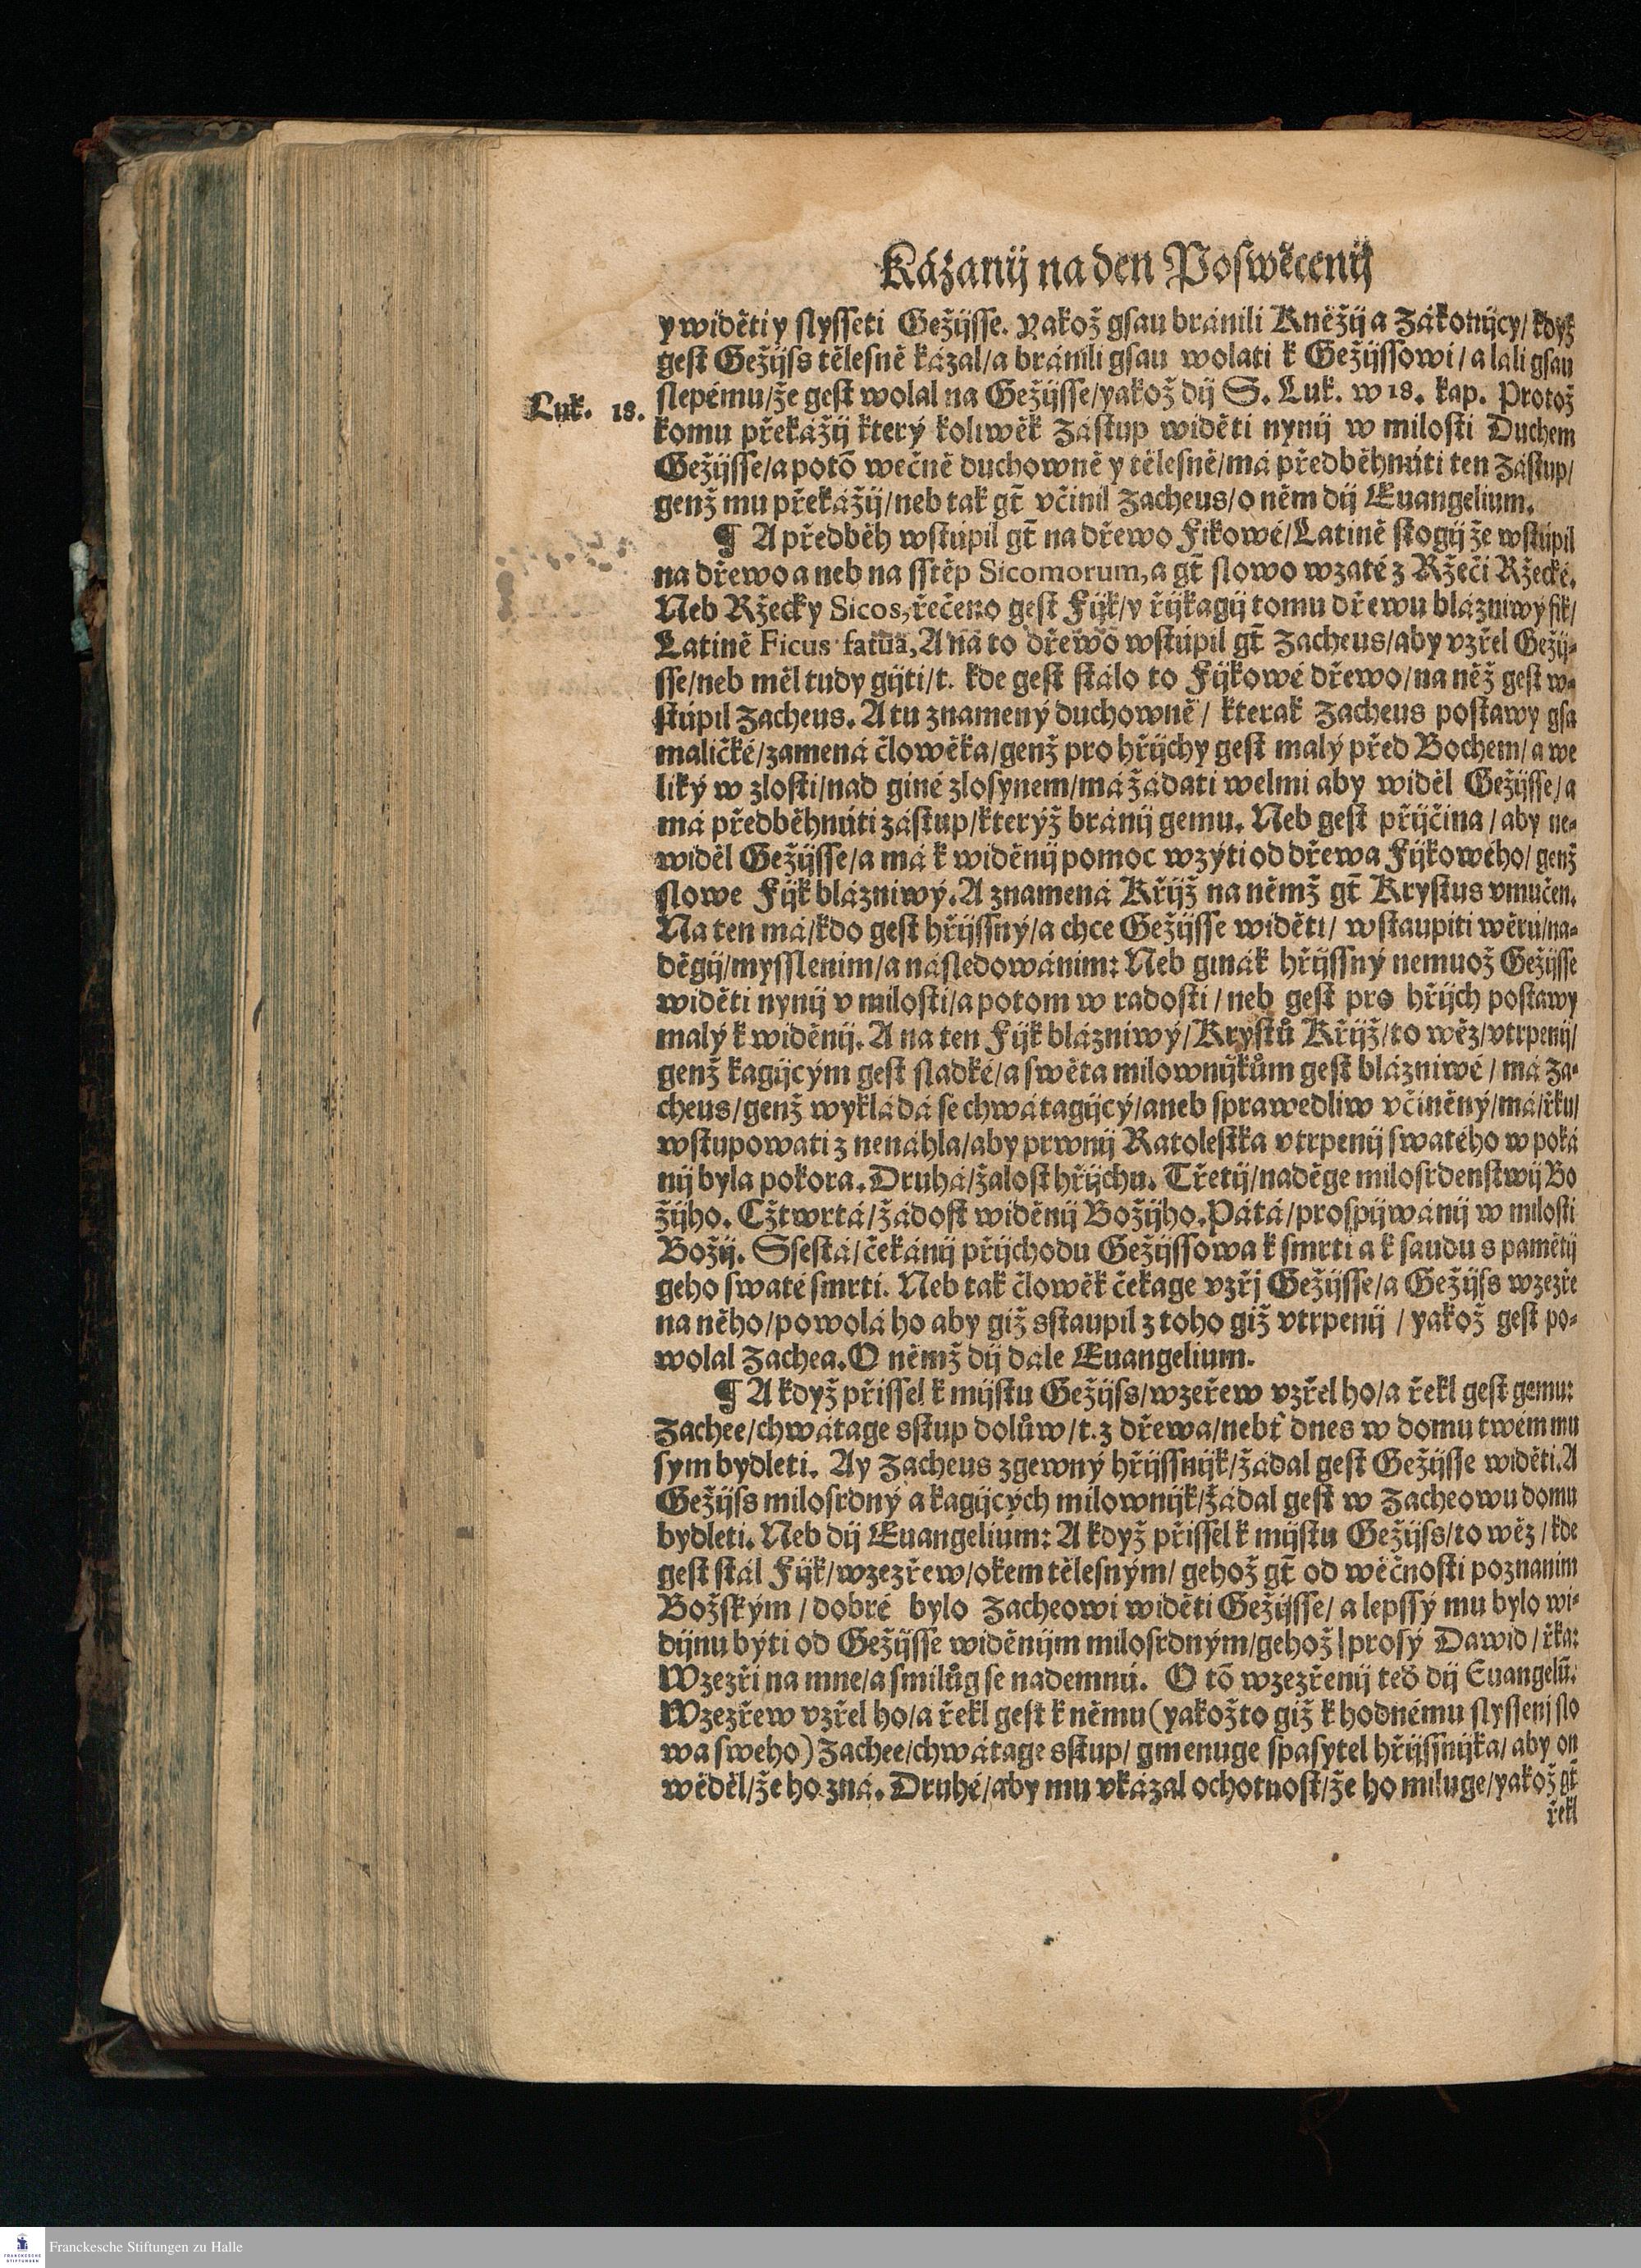 Kázanij na den Poswěcenij
y widěti y slysseti Gežijsse. Yakož gsau bránili Kněžij a Zákonijcy / když
gest Gežijss tělesně kázal / a bránili gsau wolati k Gežijssowi / a lali gsau
slepému / že gest wolal na Gežijsse / yakož dij S. Luk. w 18. kap. Protož
Luk. 18.
komu překážij který koliwěk Zástup widěti nynij w milosti Duchem
Gežijsse / a potō wečně duchowně y tělesně / má předběhnúti ten Zástup /
genž mu překážij / neb tak gt̄ včinil Zacheus / o něm dij Euangelium.
¶ A předběh wstúpil gt̄ na dřewo Fikowé / Latině stogij že wstúpil
na dřewo a neb na sstěp Sicomorum, a gt̄ slowo wzaté z Ržeči Ržecké.
Neb Ržecky Sicos, řečeno gest Fijk / y řijkagij tomu dřewu blázniwý fik /
Latině Ficus fatua, A na to dřewo wstúpil gt̄ Zacheus / aby vzřel Gežij-
sse / neb měl tudy gijti / t. kde gest stálo to Fijkowé dřewo / na něž gest w-
stúpil Zacheus. A tu znamený duchowně / kterak Zacheus postawy gsa
maličké / zamená člowěka / genž pro hřijchy gest malý před Bochem / a we
liký w zlosti / nad giné zlosynem / má žádati welmi aby widěl Gežijsse / a
má předběhnúti zástup / kterýž bránij gemu. Neb gest přijčina / aby ne-
widěl Gežijsse / a má k widěnij pomoc wzýti od dřewa Fijkowého / genž
slowe Fijk blázniwý. A znamená Křijž na němž gt̄ Krystus vmučen.
Na ten má / kdo gest hřijssný / a chce Gežijsse widěti / wstaupiti wěrú / na-
děgij / mysslenim / a následowánim: Neb ginák hřijssný nemuož Gežijsse
widěti nynij v milosti / a potom w radosti / neb gest pro hřijch postawy
malý k widěnij. A na ten Fijk blázniwý / Krystů Křijž / to wěz / vtrpenij /
genž kagijcým gest sladké / a swěta milownijkům gest blázniwé / má Za-
cheus / genž wykládá se chwátagijcý / aneb sprawedliw včiněný / má / řku /
wstupowati z nenáhla / aby prwnij Ratolestka vtrpenij swatého w poká
nij byla pokora. Druhá / žalost hřijchu. Třetij / naděge milosrdenstwij Bo
žijho. Cžtwrtá / žádost widěnij Božijho. Pátá / prospijwánij w milosti
Božij. Ssestá / čekánij přijchodu Gežijssowa k smrti a k saudu s pamětij
geho swaté smrti. Neb tak člowěk čekage vzřj Gežijsse / a Gežijss wzezře
na něho / powolá ho aby giž sstaupil z toho giž vtrpenij / yakož gest po-
wolal Zachea. O němž dij dále Euangelium.
¶ A když přissel k mijstu Gežijss / wzeřew vzřel ho / a řekl gest gemu:
Zachee / chwátage sstup dolůw / t. z dřewa / nebť dnes w domu twém mu
sym bydleti. Ay Zacheus zgewný hřijssnijk / žádal gest Gežijsse widěti. A
Gežijss milosrdný a kagijcých milownijk / žádal gest w Zacheowu domu
bydleti. Neb dij Euangelium: A když přissel k mijstu Gežijss / to wěz / kde
gest stál Fijk / wzezřew / okem tělesným / gehož gt̄ od wěčnosti poznanim
Božským / dobré bylo Zacheowi widěti Gežijsse / a lepssý mu bylo wi-
dijnu býti od Gežijsse widěnijm milosrdným / gehož prosý Dawid / řka:
Wzezři na mne / a smilůg se nademnú. O tō wzezřenij teď dij Euangelū.
Wzezřew vzřel ho / a řekl gest k němu (yakožto giž k hodnému slyssenj slo
wa sweho) Zachee / chwátage sstup / gmenuge spasytel hřijssnijka / aby on
wěděl / že ho zná. Druhé / aby mu vkázal ochotnost / že ho miluge / yakož gt̄
řekl
Franckesche Stiftungen zu Halle